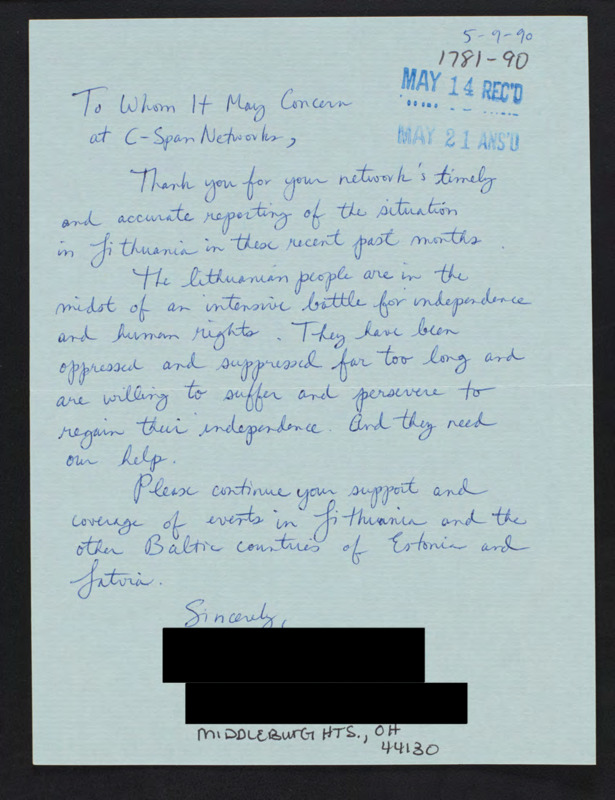 5-9-90
1781-90
MAY 14 REC'D
MAY 21 ANS'D
To Whom It May Concern
at C-Span Networks,
Thank you for your network's timely
and accurate reporting of the situation
in Lithuania in these recent past months.
The lithuanian people are in the
midst of an intensive battle for independence
and human rights. They have been
oppressed and suppressed far too long and
are willing to suffer and persevere to
regain their independence. And they need
our help.
Please continue your support and
coverage of events in Lithuania and the
other Baltic countries of Estonia and
Latvia.
Sincerely,
MIDDLEBURG HTS., OH
44130